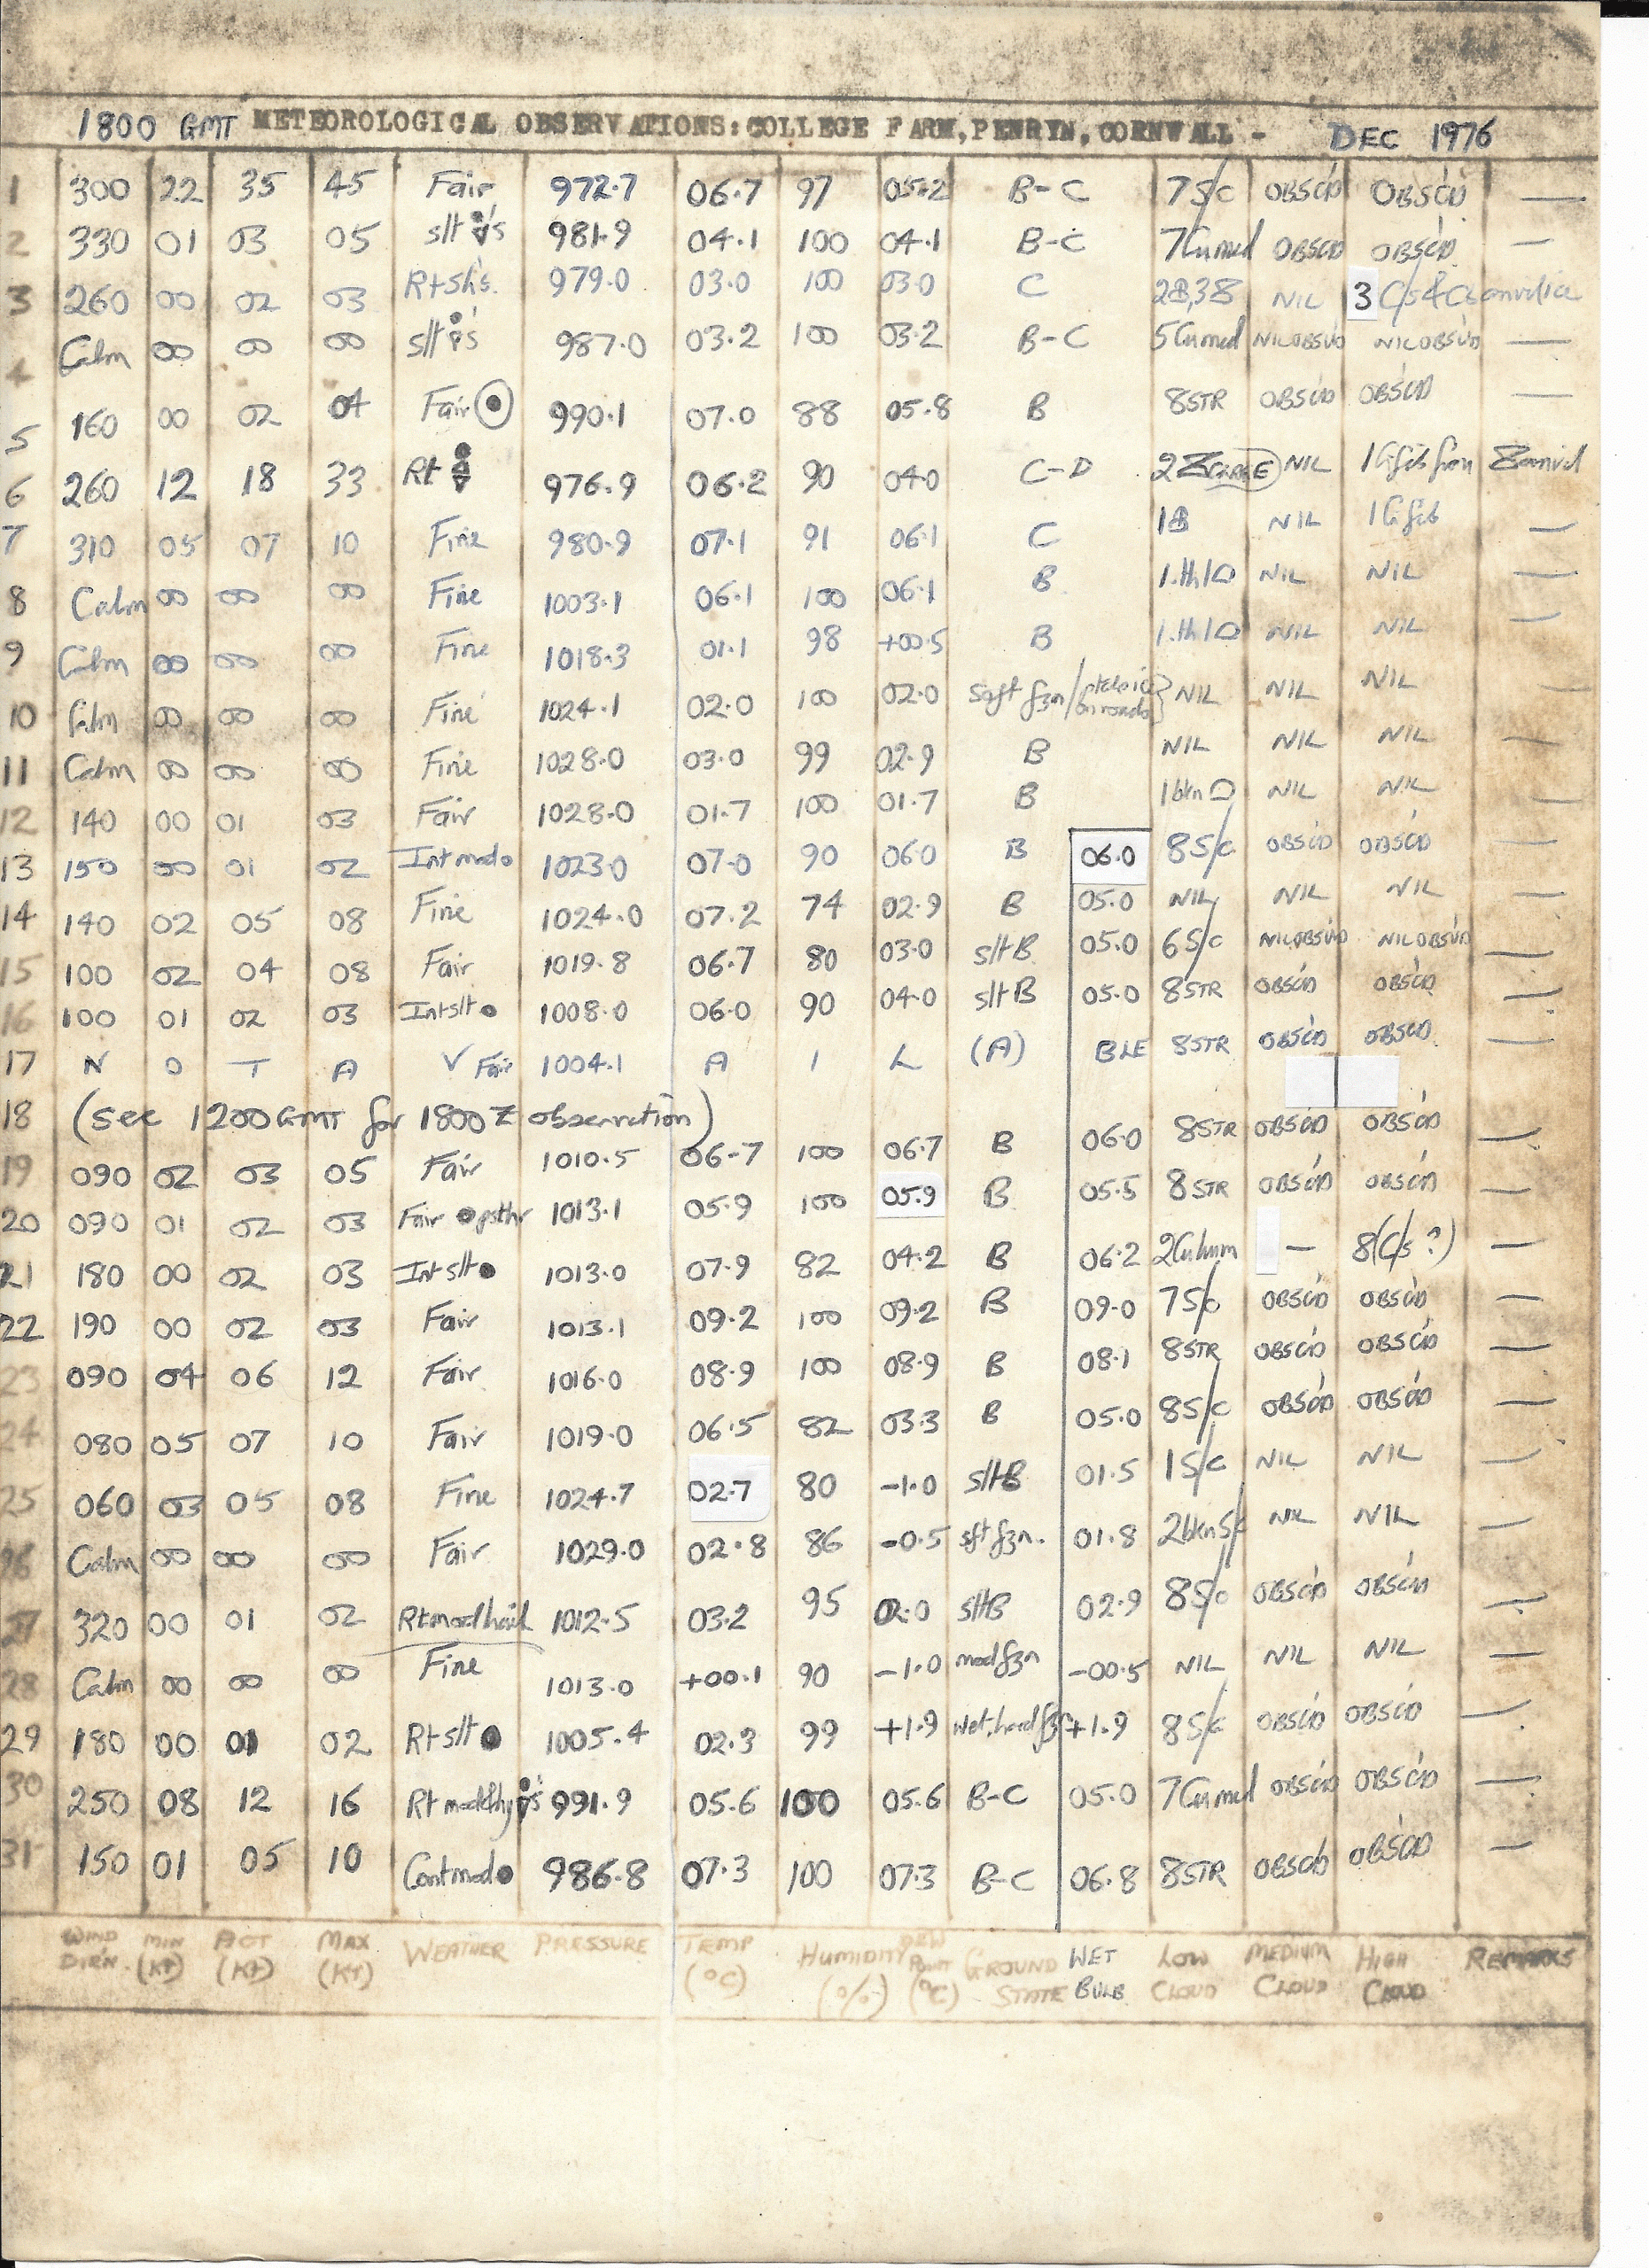 1800 GMT METEOROLOGICAL OBSERVATIONS: COLLEGE FARM, PENRYN, CORNWALL - DEC 1976
1 300 22 35 45 Fair 972.7 06.7 97 05.2 B-C 7S/c OBSC'D OBSC'D —
2 330 01 03 05 slt 's 981.9 04.1 100 04.1 B-C 7Cumed OBSC'D OBSC'D —
3 260 00 02 03 Rtsh's. 979.0 03.0 100 03.0 C NIL 3 C/s &
4 Calm 00 00 00 slt 's 987.0 03.2 100 03.2 B-C 5Cumed NILOBSV'D NILOBSV'D —
5 160 00 02 04 Fair 990.1 07.0 88 05.8 B 8STR OBSC'D OBSC'D —
6 260 12 18 33 Rt 976.9 06.2 90 04.0 C-D 2 NIL 1
7 310 05 07 10 Fine 980.9 07.1 91 06.1 C 1 NIL 1 —
8 Calm 00 00 00 Fine 1003.1 06.1 100 06.1 B 1.th NIL NIL —
9 Calm 00 00 00 Fine 1018.3 01.1 98 +00.5 B 1.th NIL NIL —
10 Calm 00 00 00 Fine 1024.1 02.0 100 02.0 on roads NIL NIL NIL —
11 Calm 00 00 00 Fine 1028.0 03.0 99 02.9 B NIL NIL NIL —
12 140 00 01 03 Fair 1028.0 01.7 100 01.7 B 1bkn NIL NIL —
13 150 00 01 02 Int mod 1023.0 07.0 90 06.0 B 06.0 8S/c OBSC'D OBSC'D —
14 140 02 05 08 Fine 1024.0 07.2 74 02.9 B 05.0 NIL NIL NIL —
15 100 02 04 08 Fair 1019.8 06.7 80 03.0 slt B 05.0 6S/c NILOBSV'D NILOBSV'D —
16 100 01 02 03 Intslt 1008.0 06.0 90 04.0 slt B 05.0 8STR OBSC'D OBSC'D —
17 N O T A V Fair 1004.1 A I L (A) BLE 8STR OBSC'D OBSC'D —
18 (See 1200GMT for 1800Z observation)
19 090 02 03 05 Fair 1010.5 06.7 100 06.7 B 06.0 8STR OBSC'D OBSC'D —
20 090 01 02 03 Fair 1013.1 05.9 100 05.9 B 05.5 8STR OBSC'D OBSC'D —
21 180 00 02 03 Intslt 1013.0 07.9 82 04.2 B 06.2 2Cuhum — 8(C/s?) —
22 190 00 02 03 Fair 1013.1 09.2 100 09.2 B 09.0 7S/c OBSC'D OBSC'D —
23 090 04 06 12 Fair 1016.0 08.9 100 08.9 B 08.1 8STR OBSC'D OBSC'D —
24 080 05 07 10 Fair 1019.0 06.5 82 03.3 B 05.0 8S/c OBSC'D OBSC'D —
25 060 03 05 08 Fine 1024.7 02.7 80 -1.0 slt B 01.5 1S/c NIL NIL —
26 Calm 00 00 00 Fair 1029.0 02.8 86 -0.5 sft fzn. 01.8 2bknS/c NIL NIL —
27 320 00 01 02 Rtmodhail 1012.5 03.2 95 02.0 sltB 02.9 8S/c OBSC'D OBSC'D —
28 Calm 00 00 00 Fine 1013.0 +00.1 90 -1.0 mod fzn -00.5 NIL NIL NIL —
29 180 00 01 02 Rt slt 1005.4 02.3 99 +1.9 Wet, hard fzn +1.9 8S/c OBSC'D OBSC'D —
30 250 08 12 16 Rt mod 's 991.9 05.6 100 05.6 B-C 05.0 7Cumed OBSC'D OBSC'D —
31 150 01 05 10 Contmod 986.8 07.3 100 07.3 B-C 06.8 8STR OBSC'D OBSC'D —
WIND DIR'N. MIN (KT) ACT (KT) MAX (KT) WEATHER PRESSURE TEMP (°C) HUMIDITY (%) DEW POINT (°C) GROUND STATE WET BULB LOW CLOUD MEDIUM CLOUD HIGH CLOUD REMARKS